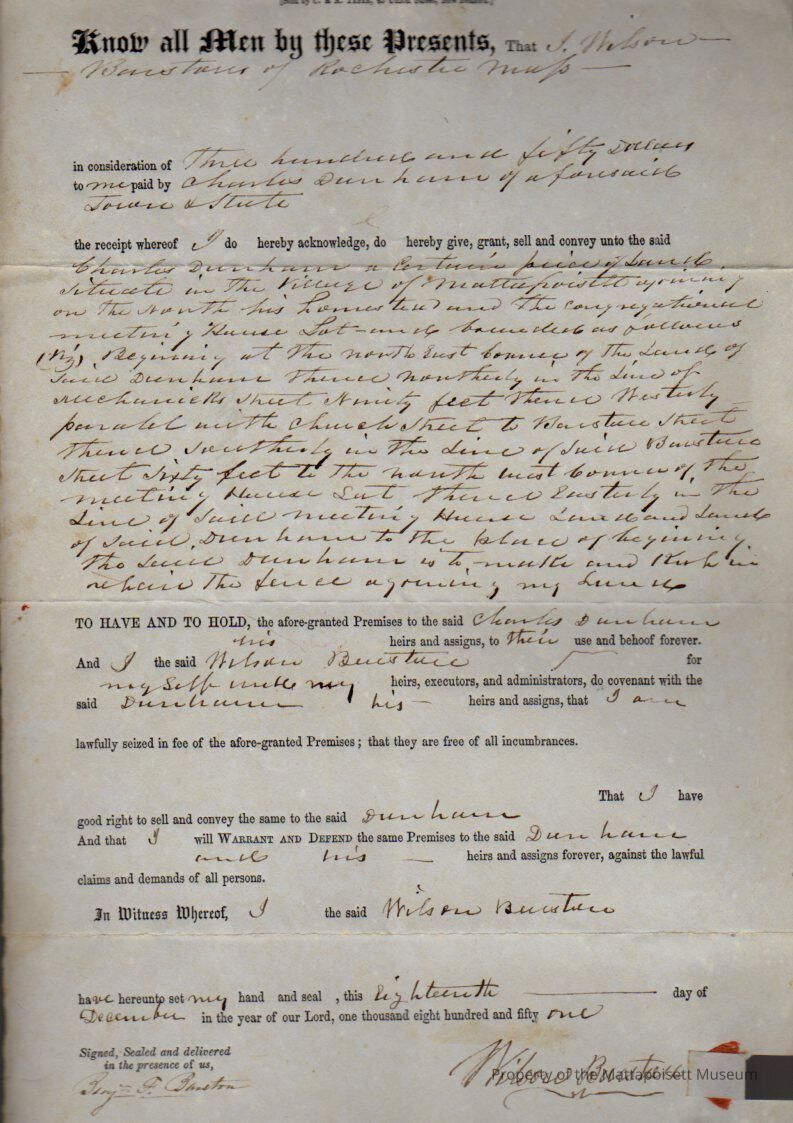 Know all Men by these Presents, That I, Wilson
Barstow of Rochester Mass
in consideration of Three hundred and fifty Dollars
to me paid by Charles Dunham of aforesaid
Town & State
the receipt whereof I do hereby acknowledge, do hereby give, grant, sell and convey unto the said
Charles Dunham a Certain peice of Land
Situate in the Village of Mattapoisett ajoining
on the North his homestead and the congregational
meeting House Lot and bounded as follows
(Viz) Beginning at the north East Corner of the Land of
Said Dunham thence northerly in the Line of
Mechanicks Street Ninity feet thence Westerly
paralel with Church Street to Barstow Street
thence Southerly in the Line of Said Barstow
Street Sixty feet to the north west Corner of the
meeting House Lot thence Easterly in the
Line of Said meeting House Land and Land
of Said Dunham to the place of beginning
the Said Dunham is to make and Keep in
repair the fence ajoining my Land
TO HAVE AND TO HOLD, the afore-granted Premises to the said Charles Dunham
his heirs and assigns, to their use and behoof forever.
And I the said Wilson Barstow for
my Self and my heirs, executors, and administrators, do covenant with the
said Dunham his heirs and assigns, that I am
lawfully seized in fee of the afore-granted Premises; that they are free of all incumbrances.
That I have
good right to sell and convey the same to the said Dunham
And that I will WARRANT AND DEFEND the same Premises to the said Dunham
and his heirs and assigns forever, against the lawful
claims and demands of all persons.
In Witness Whereof, I the said Wilson Barstow
have hereunto set my hand and seal , this Eighteenth day of
December in the year of our Lord, one thousand eight hundred and fifty one
Signed, Sealed and delivered
in the presence of us,
Benj. F. Barstow
Wilson Barstow
Property of the Mattapoisett Museum